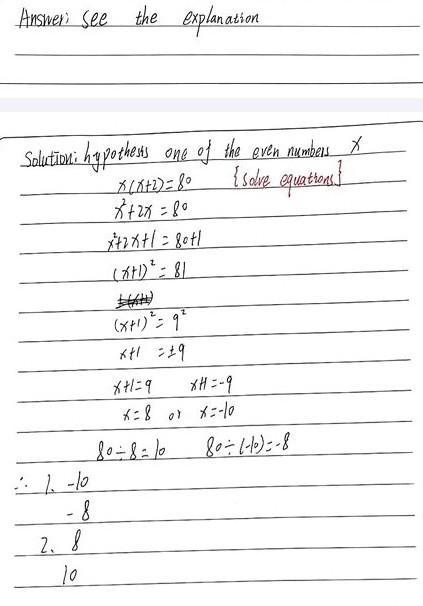 Answer: see the explanation
Solution: hypothesis one of the even numbers x
x(x+2)=80 {solve equations}
x²+2x=80
x²+2x+1=80+1
(x+1)²=81
(x+1)²=9²
x+1=±9
x+1=9 x+1=-9
x=8 or x=-10
80÷8=10 80÷(-10)=-8
∴ 1. -10
-8
2. 8
10